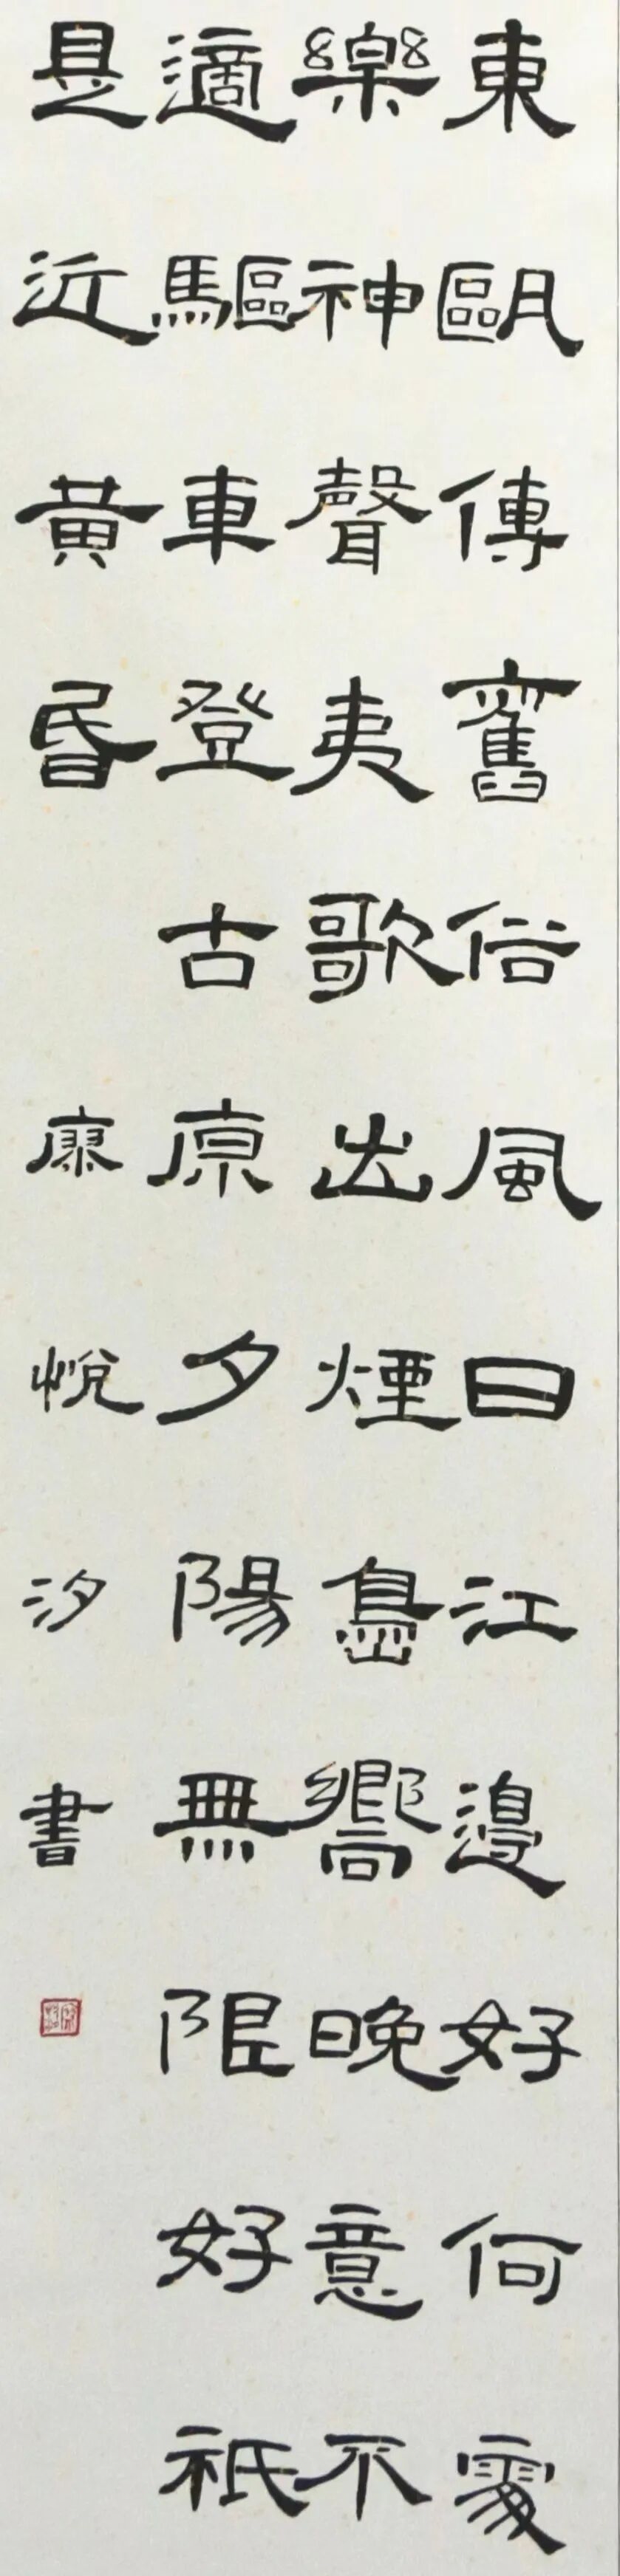 東甌傳舊俗風日江邊好何處
樂神聲夷歌出煙島嚮晚意不
適驅車登古原夕陽無限好祇
是近黄昏 康悅汐書